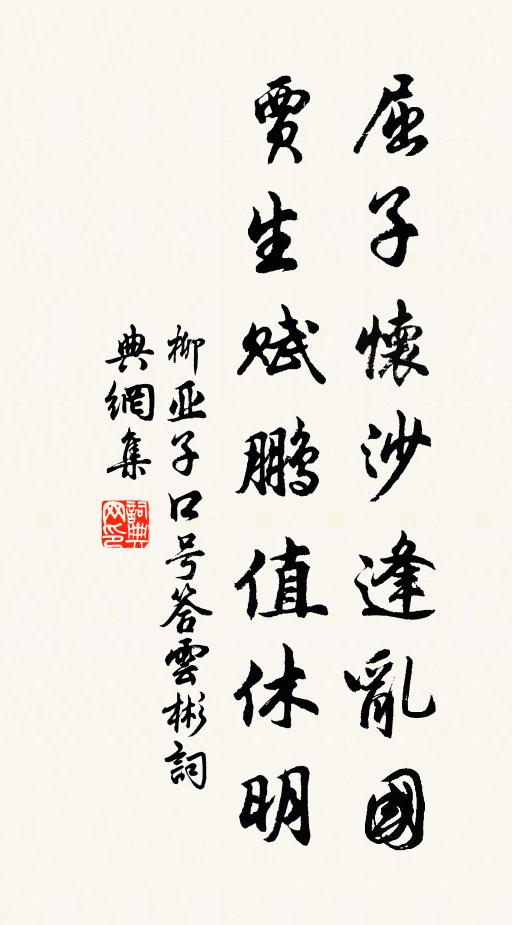 屈子懷沙逢亂國
賈生賦鵬值休明
柳亚子口号答雲彬詞
典網集
詞典网印